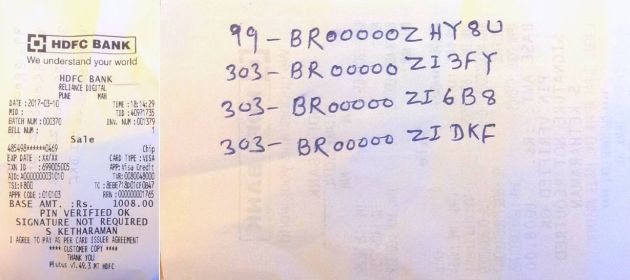 HDFC BANK
We understand your world
HDFC BANK
RELIANCE DIGITAL
PUNE MAH
DATE :2017-03-10 TIME :18:14:29
MID : TID :40971735
BATCH NUM :000370 INV. NUM :001379
BILL NUM : 1
Sale
485498******0469 Chip
EXP DATE :XX/XX CARD TYPE :VISA
TXN ID :699005005 APP:Visa Credit
AID:A0000000031010 TVR:0080048000
TSI:F800 TC :8EBE718D01CF0B47
APPR CODE :010103 RRN :000000001765
BASE AMT. :Rs. 1008.00
PIN VERIFIED OK
SIGNATURE NOT REQUIRED
S KETHARAMAN
I AGREE TO PAY AS PER CARD ISSUER AGREEMENT
**** CUSTOMER COPY ****
THANK YOU
Plutus v1.49.3 MT HDFC
99 - BR00000ZHY8U
303 - BR00000ZI3FY
303 - BR00000ZI6B8
303 - BR00000ZIDKF